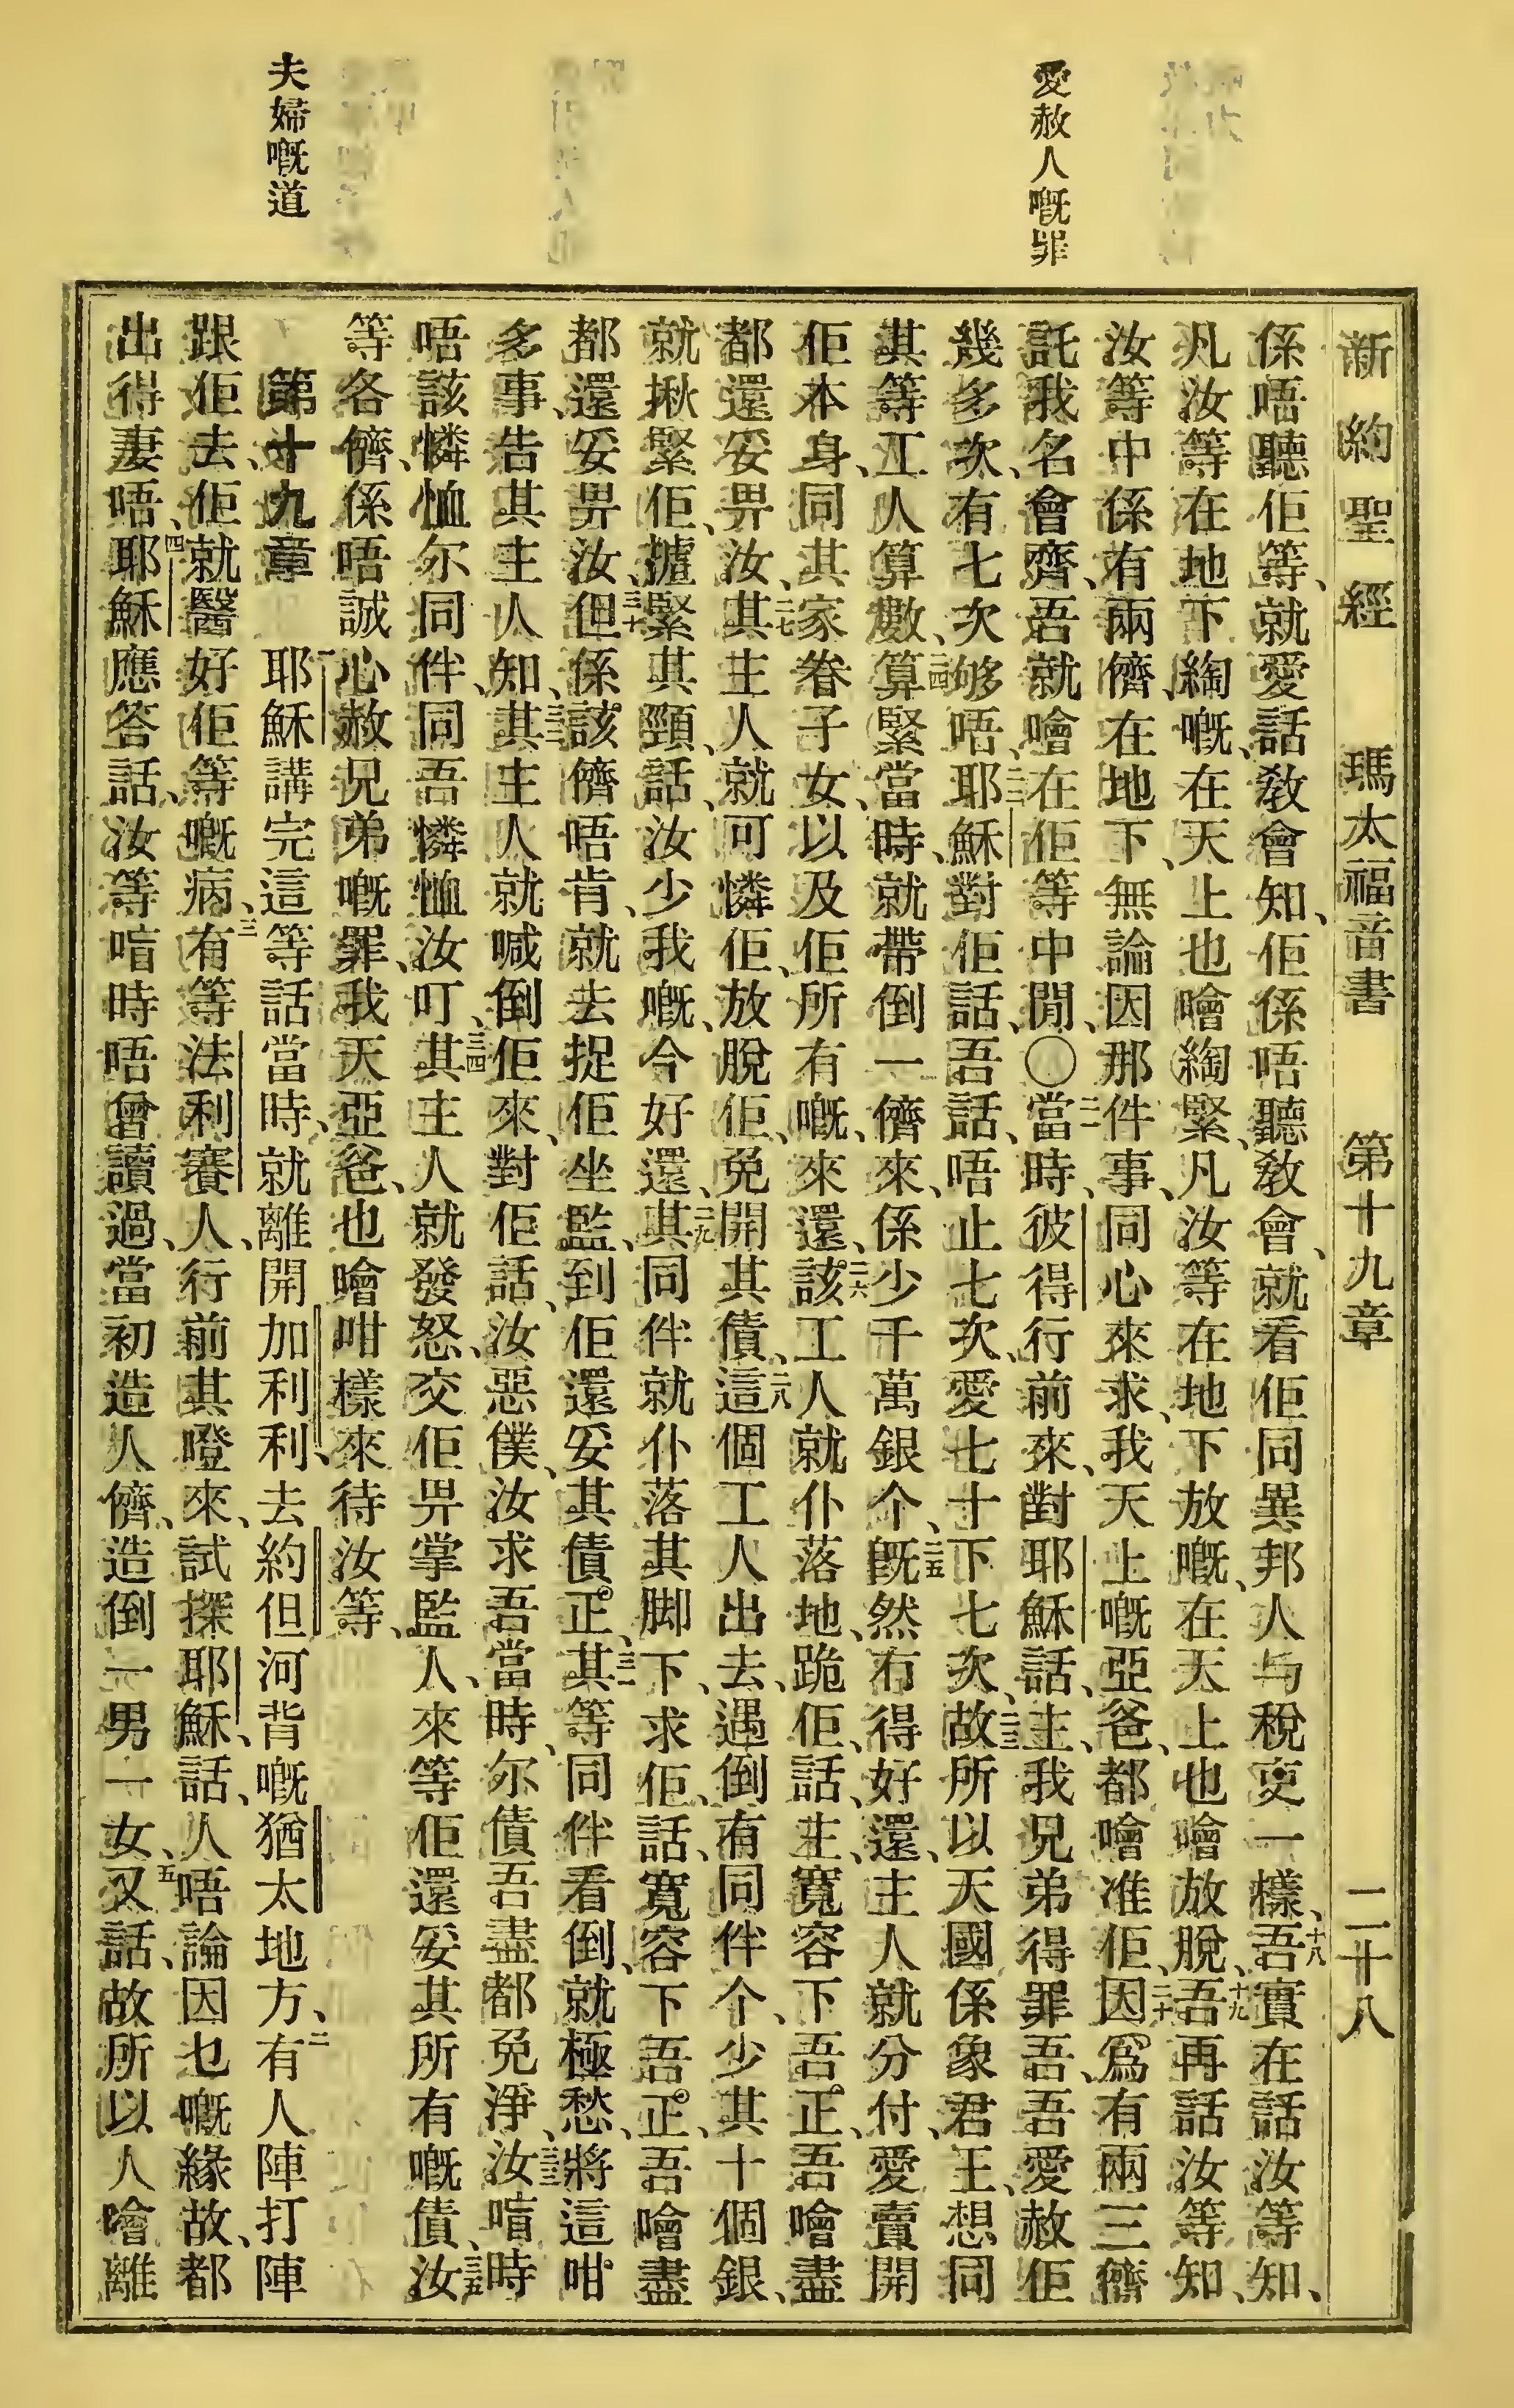 愛赦人嘅罪
夫婦嘅道
新約聖經 瑪太福音書 第十九章 二十八
係唔聽佢等、就愛話教會知、佢係唔聽教會、就看佢同異邦人与稅吏一樣、十八吾實在話汝等知、
凡汝等在地下綯嘅、在天上也噲綯緊、凡汝等在地下放嘅、在天上也噲放脫、十九吾再話汝等知、
汝等中係有兩儕、在地下、無論因那件事、同心來求、我天上嘅亞爸、都噲准佢、二十因爲有兩三儕
託我名會齊、吾就噲在佢等中間、〇二一當時、彼得行前來、對耶穌話、主、我兄弟得罪吾、吾愛赦佢
幾多次、有七次够唔、二二耶穌對佢話、吾話、唔止七次、愛七十下七次、二三故所以天國係象君王、想同
其等工人算數、二四算緊當時、就帶倒一儕來、係少千萬銀个、二五旣然冇得好還、主人就分付、愛賣開
佢本身、同其家眷子女、以及佢所有嘅、來還、二六該工人就仆落地、跪佢、話、主、寬容下吾正、吾噲盡
都還妥畀汝、二七其主人就可憐佢、放脫佢、免開其債、二八這個工人出去、遇倒有同伴个、少其十個銀、
就揪緊佢、摣緊其頸、話、汝少我嘅、今好還、二九其同伴就仆落其脚下、求佢、話、寬容下吾正、吾噲盡
都還妥畀汝、三十但係該儕唔肯、就去捉佢坐監、到佢還妥其債正、三一其等同伴看倒、就極愁、將這咁
多事、告其主人知、三二其主人就喊倒佢來、對佢話、汝惡僕、汝求吾當時、尔債吾盡都免淨、三三汝喑時
唔該憐恤尔同伴、同吾憐恤汝叮、三四其主人就發怒、交佢畀掌監人、來等佢還妥其所有嘅債、三五汝
等各儕、係唔誠心赦兄弟嘅罪、我天亞爸、也噲咁樣來待汝等、
第十九章 一耶穌講完這等話當時、就離開加利利、去約但河背嘅猶太地方、二有人陣打陣
跟佢去、佢就醫好佢等嘅病、三有等法利賽人、行前其墱來、試探耶穌、話、人唔論因乜嘅緣故、都
出得妻唔、四耶穌應答話、汝等喑時唔曾讀過、當初造人儕、造倒一男一女、五又話、故所以人噲離